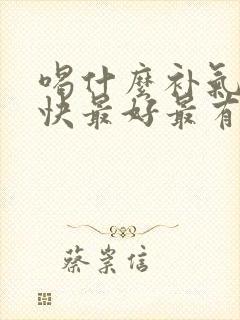 喝什麼补氣
快最好最有
蔡崇信